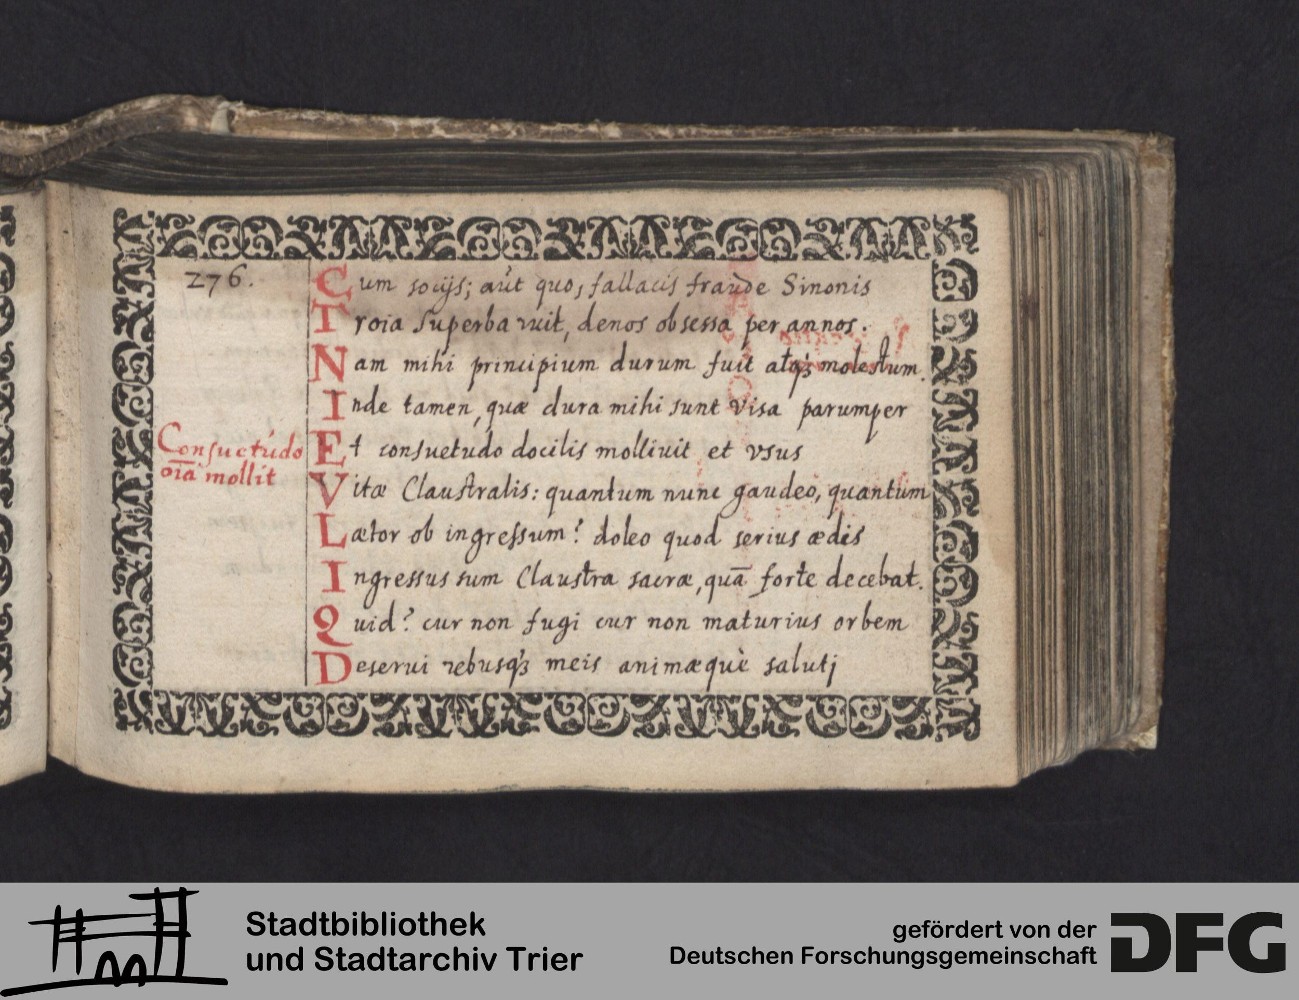 276.
Cum socijs; aut quos fallacis fraude Sinonis
Troia superba ruit, denos obsessa per annos.
Nam mihi principium durum fuit atq́ꝫ molestum.
Inde tamen, quæ dura mihi sunt visa parumper
Consuetúdo
oīa mollit
Et consuetudo docilis molliuit et vsus
Vitæ Claustralis: quantum nunc gaudeo, quantum
Lætor ob ingressum? doleo quod serius ædis
Ingressus sum Claustra sacræ, quā forte decebat.
Quid? cur non fugi cur non maturius orbem
Deserui rebusq́ꝫ meis animæquè salutj
Stadtbibliothek
und Stadtarchiv Trier
gefördert von der
Deutschen Forschungsgemeinschaft
DFG